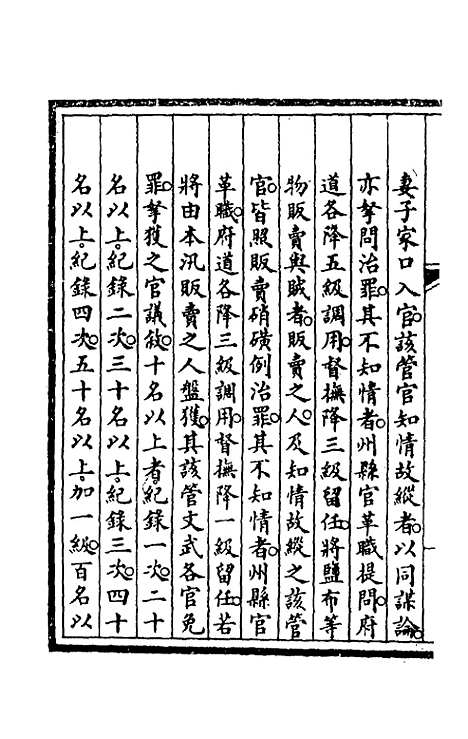 妻子家口入官該管官知情故縱者以同謀論
亦拏問治罪其不知情者州縣官革職提問府
道各降五級調用督撫降三級留任將鹽布等
物販賣與賊者販賣之人及知情故縱之該管
官皆照販賣硝磺例治罪其不知情者州縣官
革職府道各降三級調用督撫降一級留任若
將由本汛販賣之人盤獲其該管文武各官免
罪拏獲之官議敘十名以上者紀錄一次二十
名以上紀錄二次三十名以上紀錄三次四十
名以上紀錄四次五十名以上加一級百名以